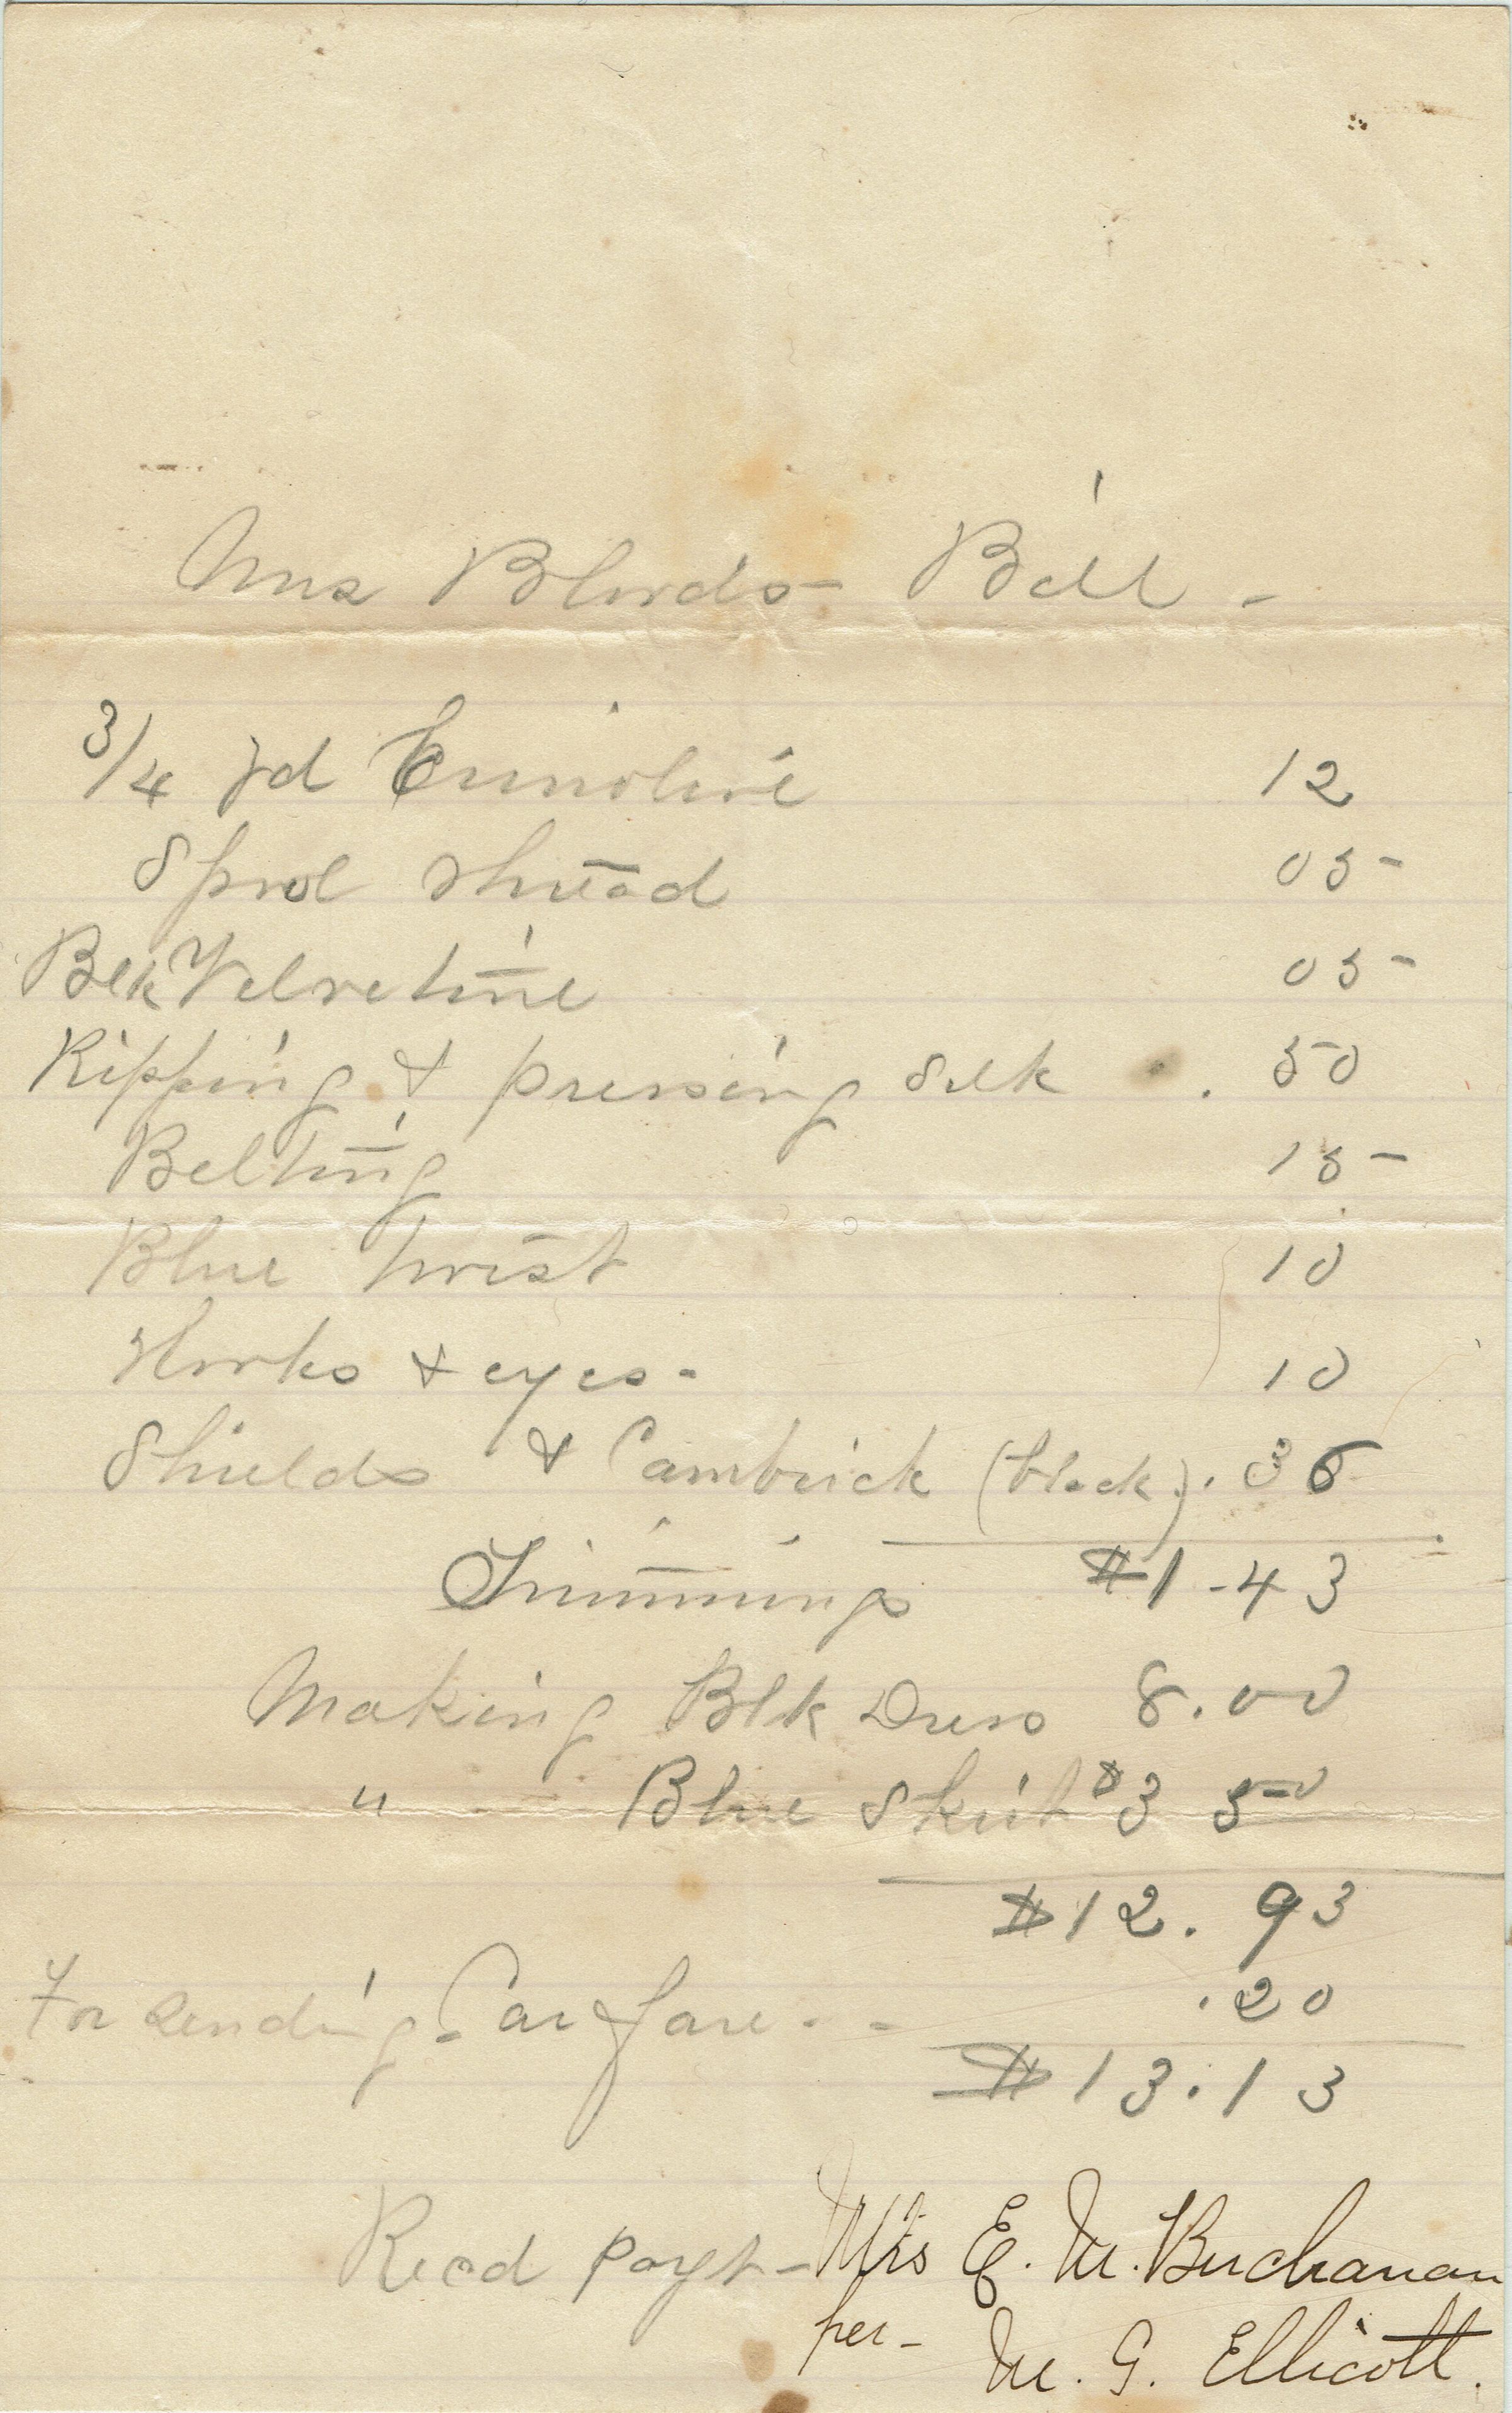 Mrs Blords Bill -
3/4 yd Crinoline 12
Spool thread 05
Blk Velveteine 05
Ripping & pressing Silk . 50
Belting 15
Blue twist 10
Hooks & eyes - 10
Shields & Cambrick (black) . 36
Trimmings $1-43
Making Blk Dress 8.00
" Blue Skirt $3 50
$12.93
For sending - Car fare - - .20
$13.13
Recd payt - Mrs E. M. Buchanan
per - M. G. Ellicott.